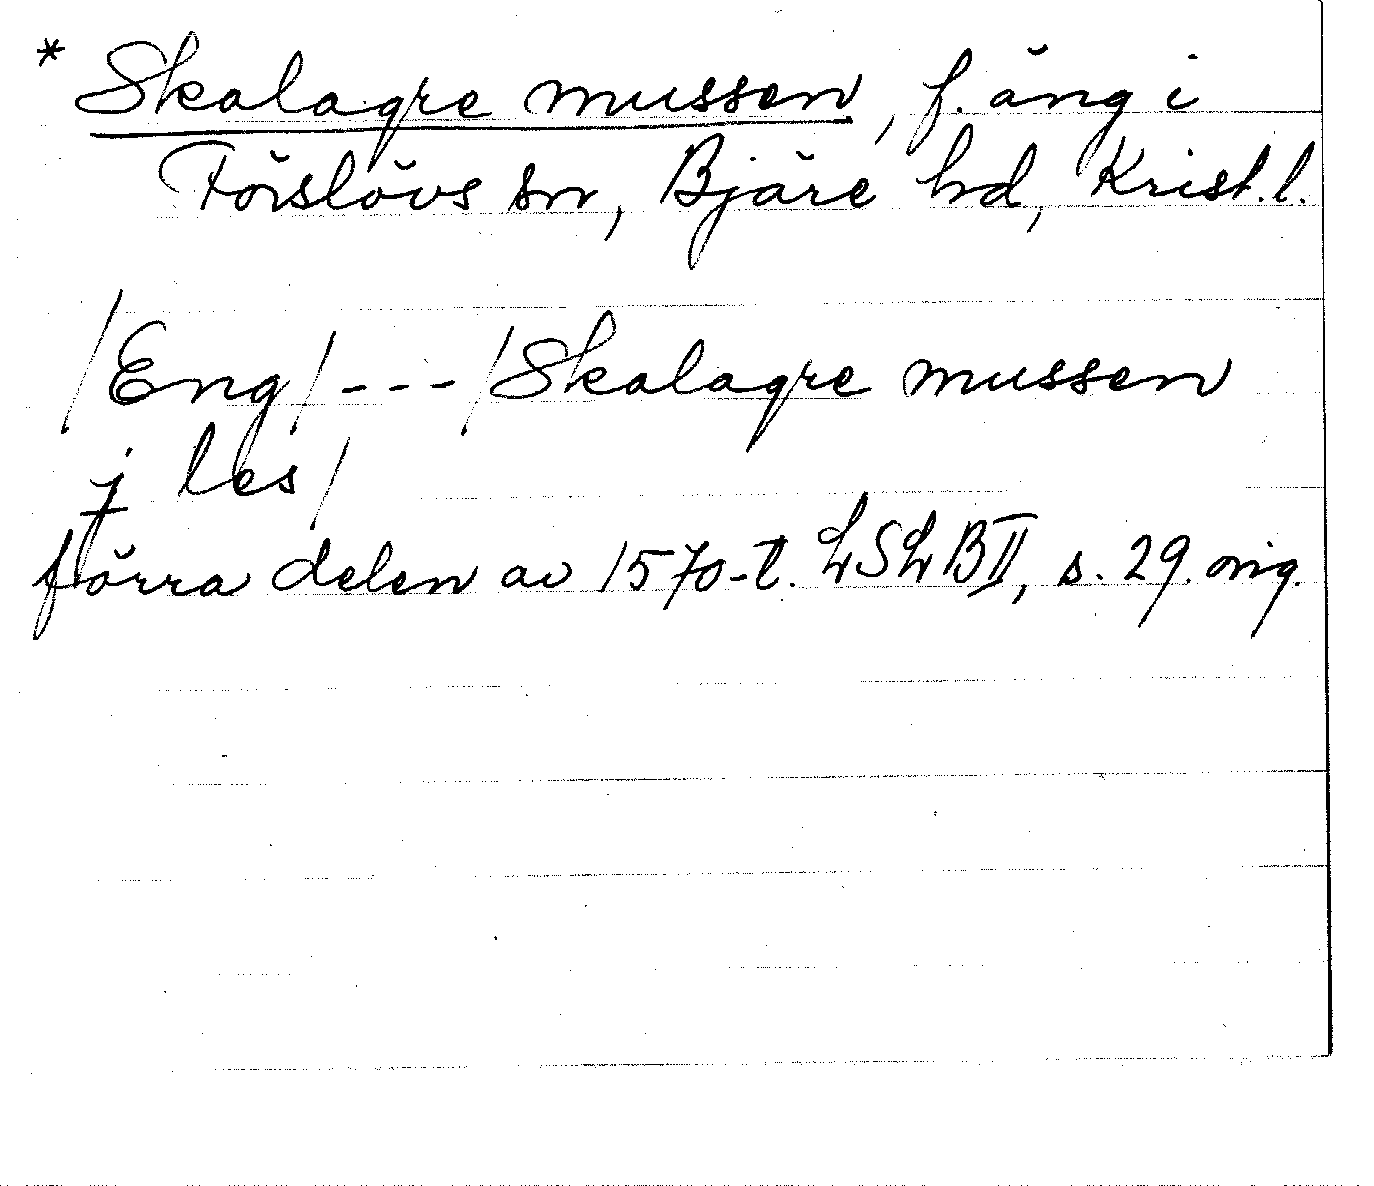 * Skalagre mussen, f. äng i
Förslövs sn, Bjäre hd, Krist. l.
/Eng/ --- /Skalagre mussen
j les/
förra delen av 1570-t. LSLB II, s. 29. orig.